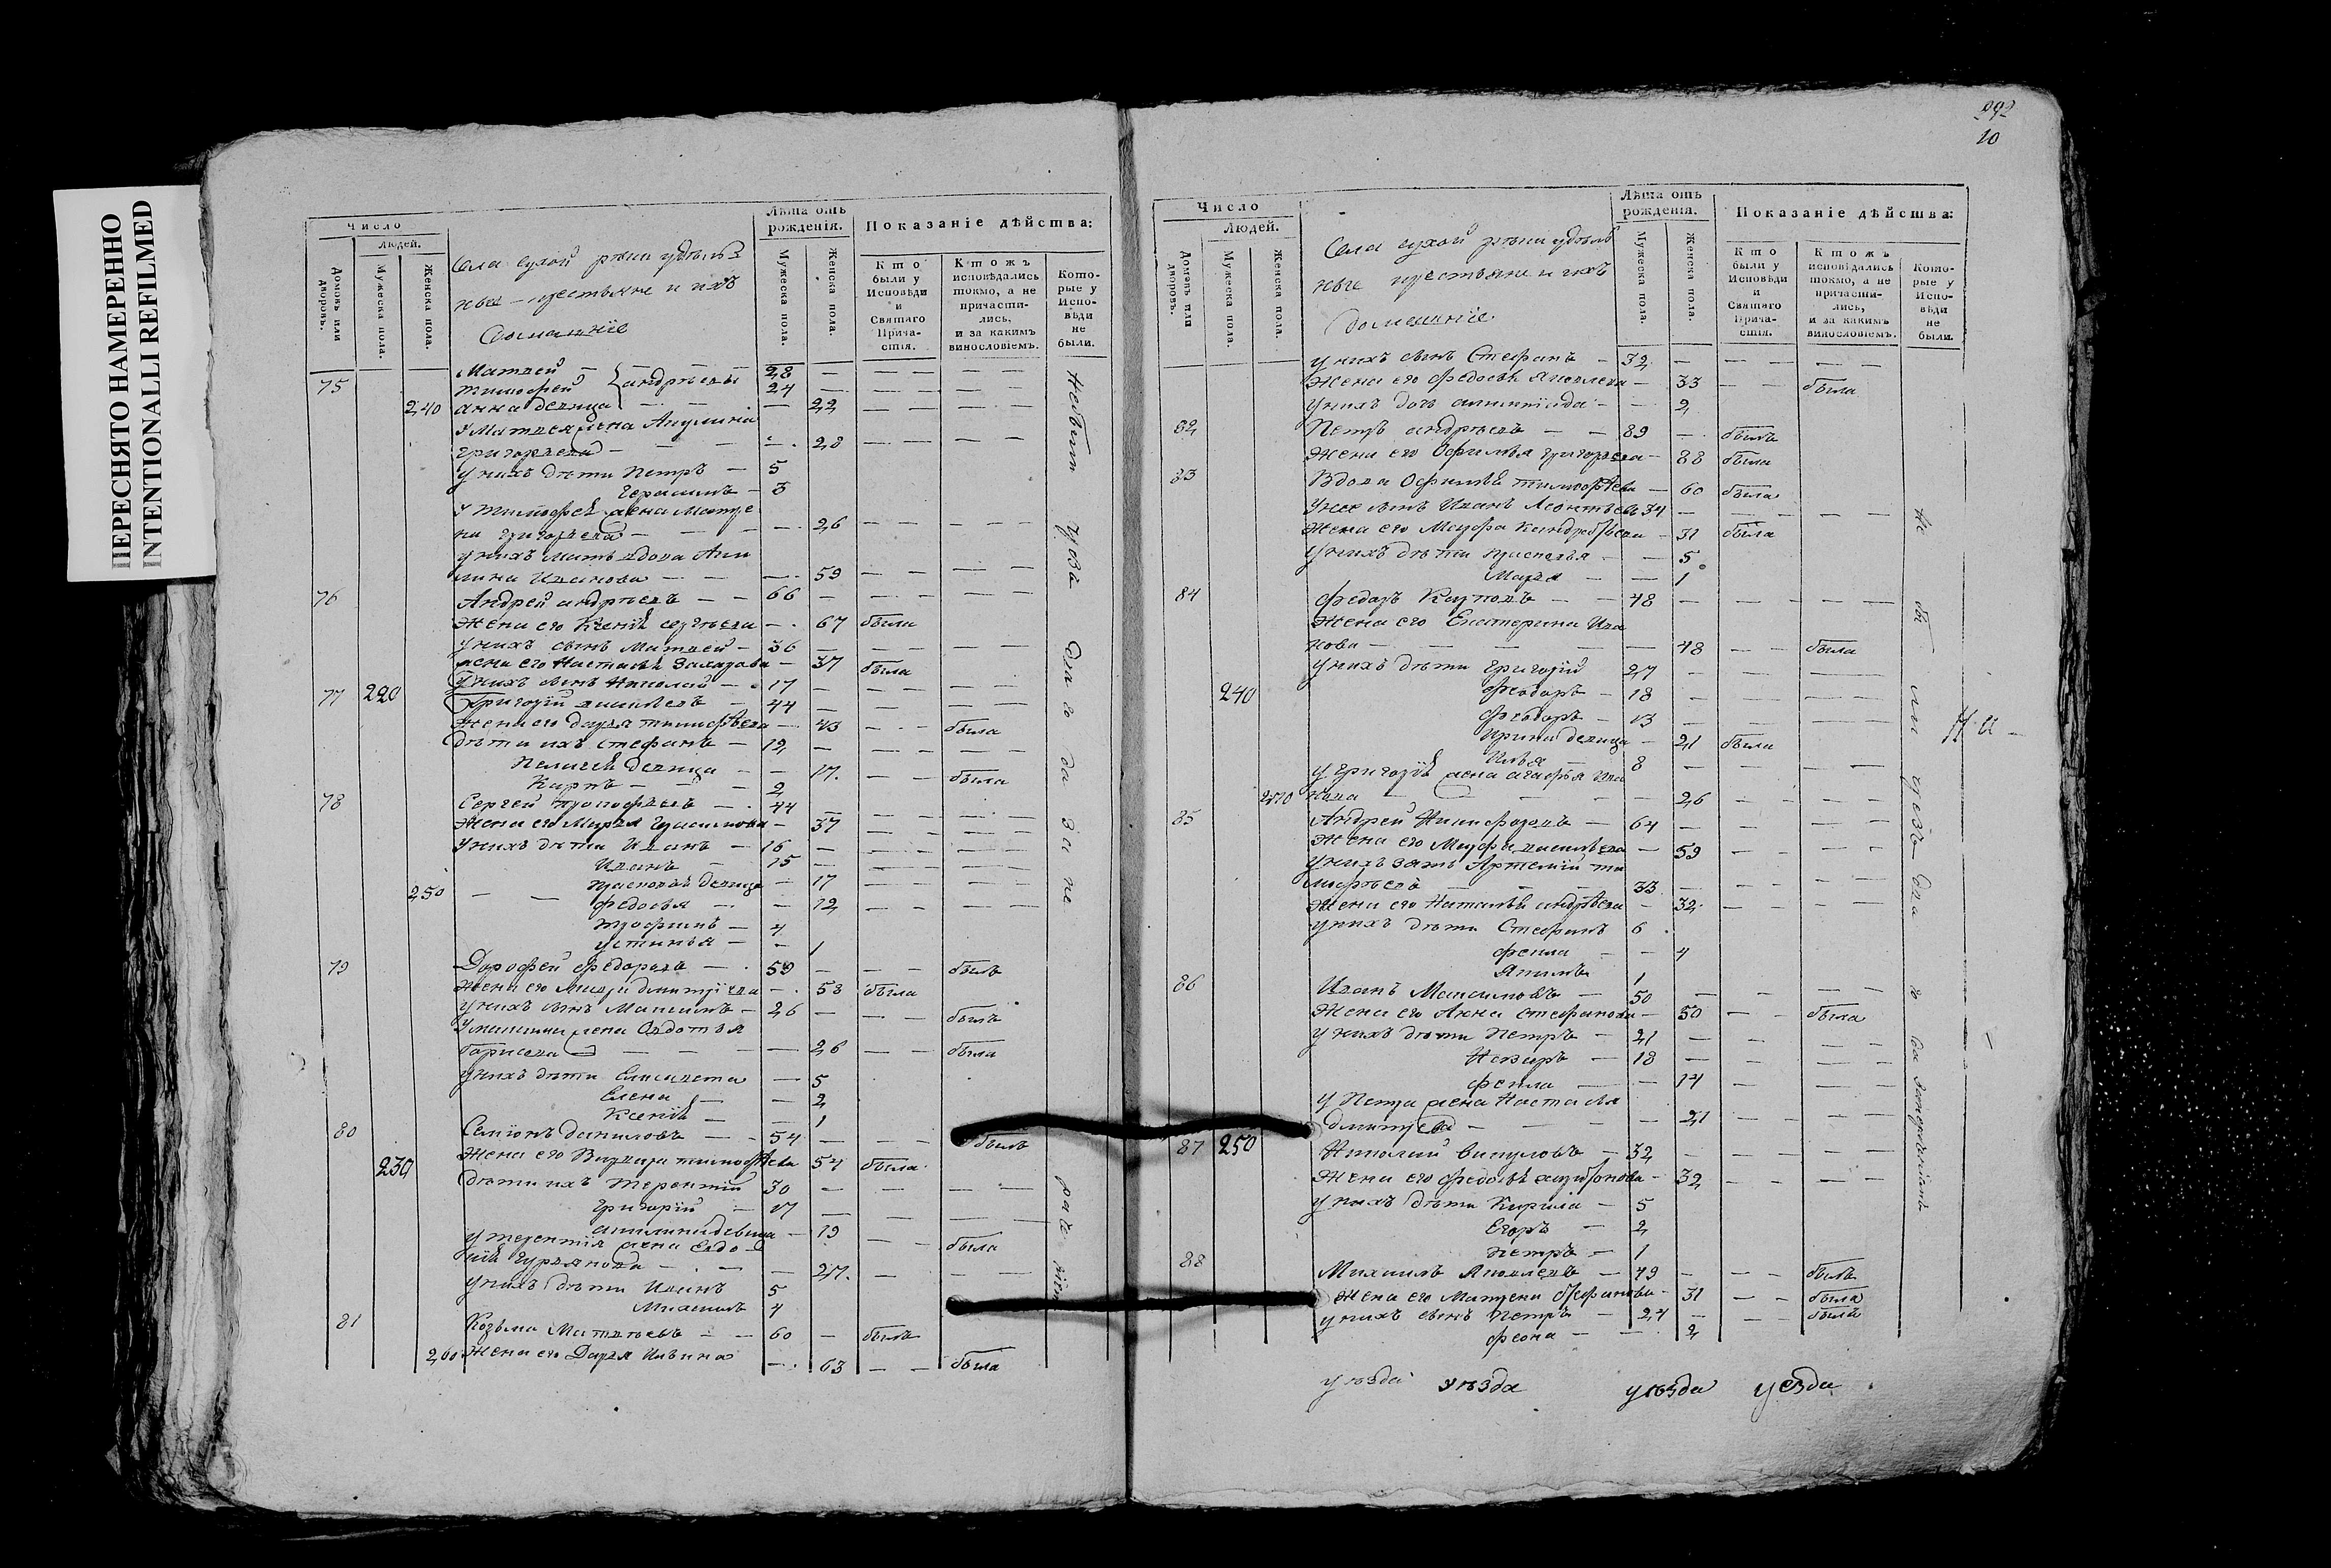 ПЕРЕСНЯТО НАМЕРЕННО
INTENTIONALLI REFILMED
292
10
Число
Людей.
Домовъ или дворовъ.
Мужеска пола.
Женска пола.
Села сухой рѣки удѣльныe крестьяне и ихъ
домашнiе
Лѣта отъ рожденiя.
Мужеска пола.
Женска пола.
Показанiе дѣйства:
Кто были у Исповѣди и Святаго Причастiя.
Ктожъ исповѣдались токмо, а не причастились, и за какимъ винословiемъ.
Которые у Исповѣди не были.
75 Матвей — 28
Тимофей андрѣевы 24
240 анна девица — 22
У Матвея жена Акулина
григорьева — 28
у нихъ дѣти Петръ — 5
Герасимъ — 3
У Тимофея жена Матре
на григорьева — 26
у нихъ мать вдова Аки
лина Иванова — 59
76 Андрей андрѣевъ — 66
Жена его Ксенiя сергѣева — 67 была
у нихъ сынъ Матвей — 36
жена его Настасья Захарова — 37 была
у нихъ сынъ Николай — 17
77 220 Григорiй васильевъ — 44
Жена его Дарья тимофѣева — 43 была
дѣти ихъ стефанъ — 12
Пелагея девица — 17 была
Карпъ — 2
78 Сергей — 44
Жена его Марья Герасимова — 37
У нихъ дѣти Иванъ — 16
Иванъ — 15
Прасковья девица — 17
250 федосья — 12
трофимъ — 4
устинья — 1
79 Дорофей федоровъ — 59 былъ
Жена его дмитрiева — 58 была
у нихъ сынъ Максимъ — 26 былъ
У максима жена Овдотья
борисова — 26 была
у нихъ дѣти Елисавета — 5
Елена — 2
Ксенiя — 1
80 Семiонъ даниловъ — 54 былъ
230 Жена его Варвара тимофѣева 54 была
дѣти ихъ терентiй 30
Григорiй — 17
акилина девица — 19 была
у терентiя жена Евдо
кiя Гурьянова — 27
у нихъ дѣти Иванъ 5
Михаилъ 4
81 Козьма Матвѣевъ — 60 былъ
260 Жена его Дарья Ильина — 63 была
Число
Людей.
Домовъ или дворовъ.
Мужеска пола.
Женска пола.
Села сухой рѣки удѣль
ные крестьяне и ихъ
домашнiе.
Лѣта отъ рожденiя.
Мужеска пола.
Женска пола.
Показанiе дѣйства:
Кто были у Исповѣди и Святаго Причастiя.
Ктожъ исповѣдались токмо, а не причастились, и за какимъ винословiемъ.
Которые у Исповѣди не были.
у нихъ сынъ Стефанъ — 32
Жена его федосья Яковлева — 33 была
у нихъ дочь — 2
82 Петръ андрѣевъ — 89 былъ
Жена его Офимья григорьева — 88 была
83 Вдова Офимья тимофѣева — 60 была
У нее сынъ Иванъ Леонтьевъ 34
Жена его Марфа — 31 была
У нихъ дѣти прасковья — 5
Марья — 1
84 федоръ Карповъ — 48
Жена его Екатерина Ива
нова — 48 была
у нихъ дѣти Григорiй 27
240 федоръ — 18
федоръ — 13
Ирина девица — 21 была
Илья — 8
у Григорiя жена агафья Ива
270 нова — 26
85 Андрей Никифоровъ — 64
Жена его Марфа васильева — 59
У нихъ зять Артемiй ти
мофѣевъ 33
Жена его Наталья андрѣева — 32
у нихъ дѣти Стефанъ 6
фекла — 4
Якимъ 1
86 Иванъ Максимовъ — 50
Жена его Анна стефанова — 50 была
у нихъ дѣти Петръ — 21
Назаръ — 18
фекла — 14
У Петра жена Настасья
дмитрева — 21
87 250 Николай викуловъ — 32
Жена его федосья — 32
у нихъ дѣти Кирила — 5
Егоръ — 2
Петръ — 1
88 Михаилъ Яковлевъ — 49 былъ
Жена его Матрена — 31 была
у нихъ сынъ Петръ — 24 былъ
феона — 2
уѣзда уѣзда уѣзда уезда